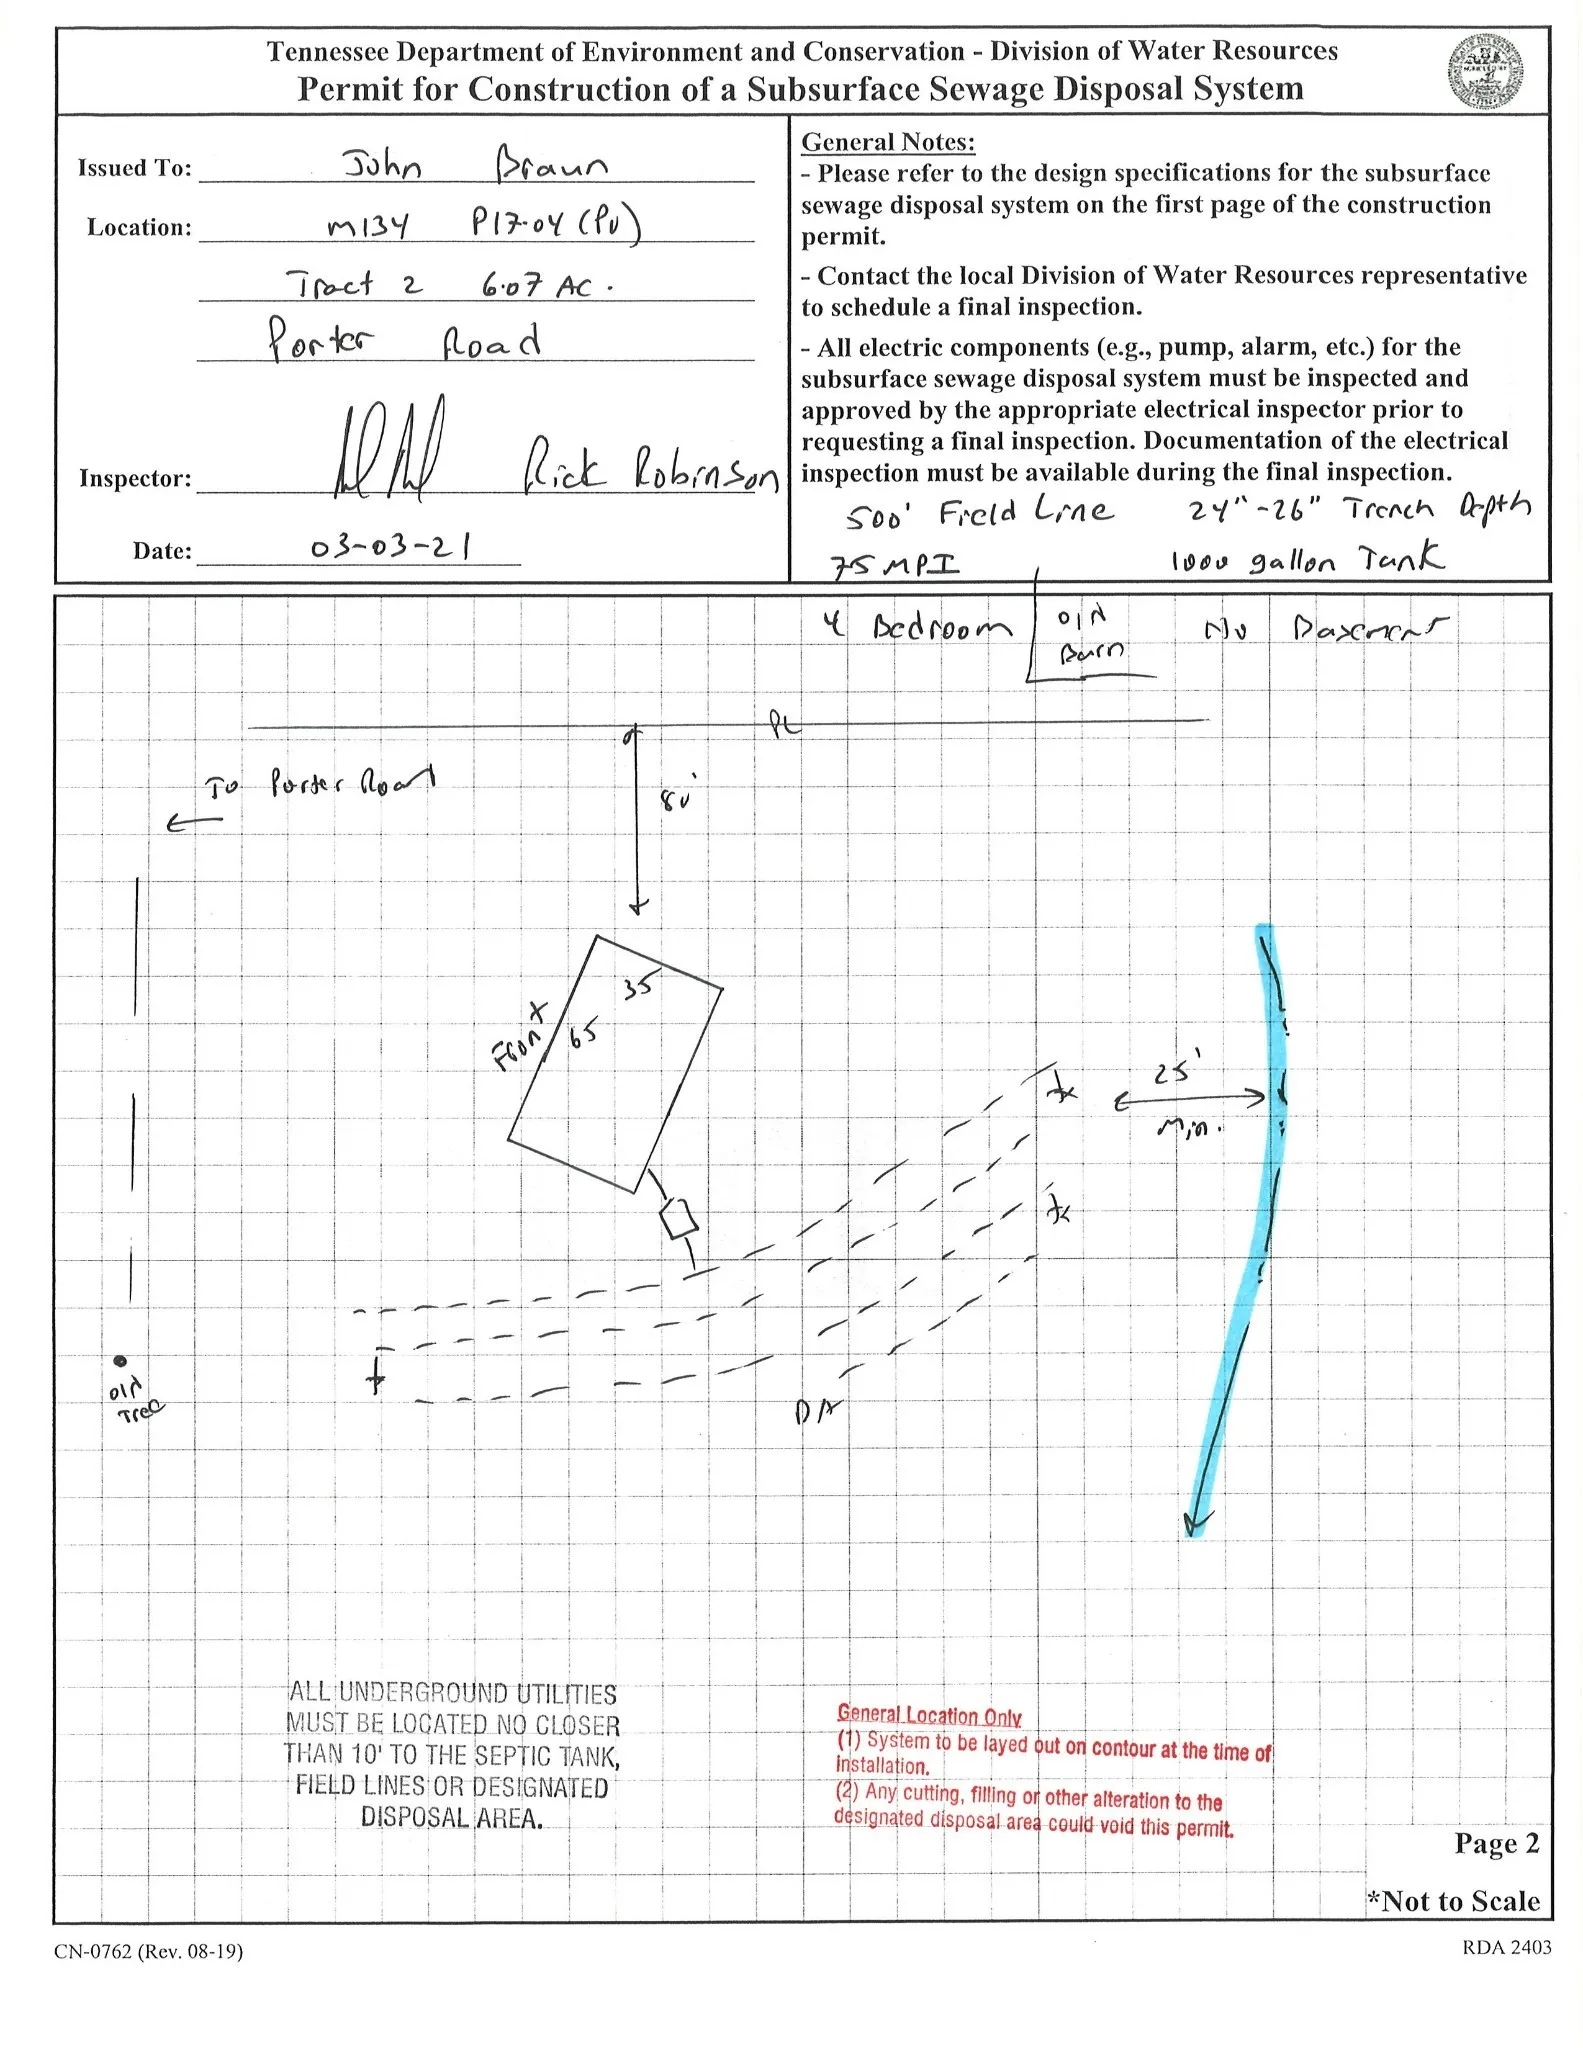 Tennessee Department of Environment and Conservation - Division of Water Resources
Permit for Construction of a Subsurface Sewage Disposal System
Issued To: John Braun
Location: M134 P17.04 (PU)
Tract 2 6.07 AC.
Porter Road
Inspector: Rick Robinson
Date: 03-03-21
General Notes:
- Please refer to the design specifications for the subsurface
sewage disposal system on the first page of the construction
permit.
- Contact the local Division of Water Resources representative
to schedule a final inspection.
- All electric components (e.g., pump, alarm, etc.) for the
subsurface sewage disposal system must be inspected and
approved by the appropriate electrical inspector prior to
requesting a final inspection. Documentation of the electrical
inspection must be available during the final inspection.
500' Field Line 24"-26" Trench Depth
75 MPI 1000 gallon Tank
4 Bedroom
Old
Barn
No Basement
PL
To Porter Road
80'
35
65
Front
25'
Min.
Old
Tree
DA
ALL UNDERGROUND UTILITIES
MUST BE LOCATED NO CLOSER
THAN 10' TO THE SEPTIC TANK,
FIELD LINES OR DESIGNATED
DISPOSAL AREA.
General Location Only
(1) System to be layed out on contour at the time of
installation.
(2) Any cutting, filling or other alteration to the
designated disposal area could void this permit.
Page 2
*Not to Scale
CN-0762 (Rev. 08-19)
RDA 2403